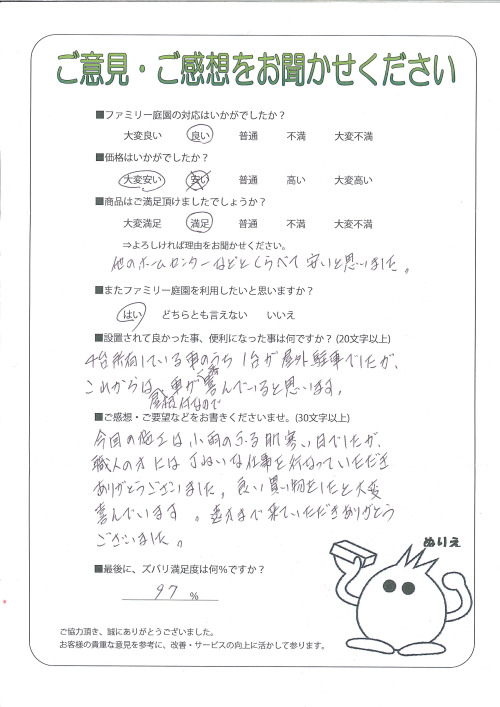 ご意見・ご感想をお聞かせください
■ファミリー庭園の対応はいかがでしたか？
大変良い 良い 普通 不満 大変不満
■価格はいかがでしたか？
大変安い 安い 普通 高い 大変高い
■商品はご満足頂けましたでしょうか？
大変満足 満足 普通 不満 大変不満
⇒よろしければ理由をお聞かせください。
他のホームセンターなどとくらべて安いと思いました。
■またファミリー庭園を利用したいと思いますか？
はい どちらとも言えない いいえ
■設置されて良かった事、便利になった事は何ですか？(20文字以上)
4台所有している車のうち1台が屋外駐車でしたが、
これからは、車が喜んでいると思います。
屋根付なので
■ご感想・ご要望などをお書きくださいませ。(30文字以上)
今回の施工は小雨のふる肌寒い日でしたが、
職人の方にはていねいな仕事を行なっていただき
ありがとうございました。良い買い物をしたと大変
喜んでいます。遠方まで来ていただきありがとう
ございました。
ぬりえ
■最後に、ズバリ満足度は何％ですか？
97 %
ご協力頂き、誠にありがとうございました。
お客様の貴重な意見を参考に、改善・サービスの向上に活かして参ります。